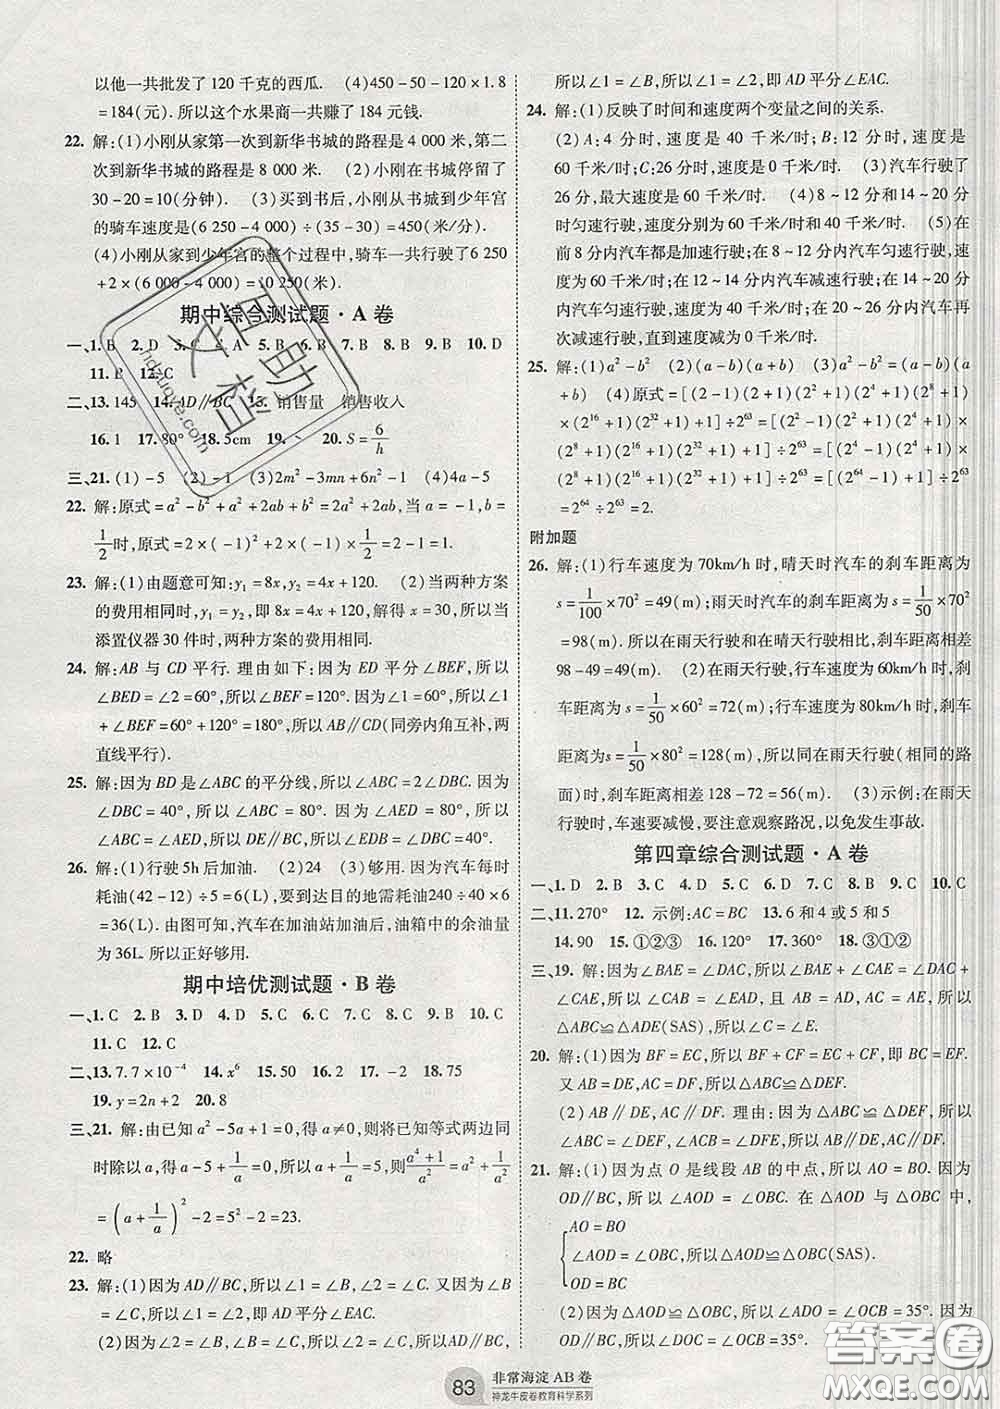 以他一共批发了 120 千克的西瓜. (4)450-50-120×1.8
=184(元). 所以这个水果商一共赚了 184 元钱.
22. 解:(1)小刚从家第一次到新华书城的路程是 4 000 米,第二
次到新华书城的路程是 8 000 米. (2)小刚在书城停留了
30-20=10(分钟). (3)买到书后,小刚从书城到少年宫
的骑车速度是(6 250-4 000)÷(35-30)=450(米/分).
(4)小刚从家到少年宫的整个过程中,骑车一共行驶了 6 250
+2×(6 000-4 000)=10 250(米).
期中综合测试题·A 卷
一、1. B 2. D 3. C 4. A 5. B 6. B 7. B 8. B 9. B 10. D
11. B 12. C
二、13. 145 14. AD∥BC 15. 销售量 销售收入
16. 1 17. 80° 18. 5cm 19. 20. S=6/h
三、21. (1)-5 (2)-1 (3)2m²-3mn+6n²-1 (4)4a-5
22. 解:原式=a²-b²+a²+2ab+b²=2a²+2ab, 当 a=-1, b=
1/2时,原式=2×(-1)²+2×(-1)×1/2=2-1=1.
23. 解:(1)由题意可知:y₁=8x,y₂=4x+120. (2)当两种方案
的费用相同时,y₁=y₂,即 8x=4x+120,解得 x=30,所以当
添置仪器 30 件时,两种方案的费用相同.
24. 解:AB 与 CD 平行. 理由如下:因为 ED 平分∠BEF,所以
∠BED=∠2=60°,所以∠BEF=120°. 因为∠1=60°,所以∠1
+∠BEF=60°+120°=180°,所以 AB∥CD(同旁内角互补,两
直线平行).
25. 解:因为 BD 是∠ABC 的平分线,所以∠ABC=2∠DBC. 因为
∠DBC=40°,所以∠ABC=80°. 因为∠AED=80°,所以
∠ABC=∠AED,所以 DE∥BC,所以∠EDB=∠DBC=40°.
26. 解:(1)行驶 5h 后加油. (2)24 (3)够用. 因为汽车每时
耗油(42-12)÷5=6(L),要到达目的地还需耗油 240÷40×6
=36(L). 由图可知,汽车在加油站加油后,油箱中的余油量
为 36L. 所以正好够用.
期中培优测试题·B 卷
一、1. C 2. B 3. D 4. D 5. A 6. C 7. B 8. B 9. C 10. C
11. C 12. C
二、13. 7.7×10⁻⁴ 14. x⁶ 15. 1 16. -3 17. -2 18. 75
19. y=2n+2 20. 8
三、21. 解:由已知 a²-5a+1=0,得 a≠0,则将已知等式两边同
时除以 a,得 a-5+1/a=0,所以 a+1/a=5,则(a⁴+1)/a²=a²+1/a²
=(a+1/a)²-2=5²-2=23.
22. 略
23. 解:(1)因为 AD∥BC,所以∠1=∠B,∠2=∠C. 又因为∠B
=∠C,所以∠1=∠2,即 AD 平分∠EAC.
(2)因为∠B+∠C+∠BAC=180°,且∠1+∠2+∠BAC=180°,
所以∠1=∠B,所以∠1=∠2,即 AD 平分∠EAC.
24. 解:(1)反映了时间和速度两个变量之间的关系.
(2)A:4 分时,速度是 40 千米/时;B:12 分时,速度是
60 千米/时;C:26 分时,速度是 0 千米/时. (3)汽车行驶了
26 分,最大速度是 60 千米/时. (4)8~12 分和 14~20 分
时匀速行驶,速度分别为 60 千米/时和 40 千米/时. (5)在
前 8 分内汽车都是加速行驶;在 8~12 分汽车匀速行驶,速
度是 60 千米/时;在 12~14 分内汽车减速行驶;在 14~20 分
内汽车匀速行驶,速度是 40 千米/时;在 20~26 分内汽车再
次减速行驶,直到速度减到 0 千米/时.
25. 解:(1)a²-b² (2)(a-b)(a+b) (3)a²-b²=(a-b)(a
+b) (4)原式=[(2-1)(2+1)(2²+1)(2⁴+1)(2⁸+1)·
(2¹⁶+1)(2³²+1)+1]÷2⁶³=[(2²-1)(2²+1)(2⁴+1)·
(2⁸+1)(2¹⁶+1)(2³²+1)+1]÷2⁶³=[(2⁴-1)(2⁴+1)·
(2⁸+1)(2¹⁶+1)(2³²+1)+1]÷2⁶³=[(2⁶⁴-1)+1]÷2⁶³=
2⁶⁴÷2⁶³=2.
附加题
26. 解:(1)行车速度为 70km/h 时,晴天时汽车的刹车距离为
s=1/100×70²=49(m);雨天时汽车的刹车距离为 s=1/50×70²
=98(m). 所以在雨天行驶和在晴天行驶相比,刹车距离相差
98-49=49(m). (2)在雨天行驶,行车速度为 60km/h 时,刹
车距离为 s=1/50×60²=72(m);行车速度为 80km/h 时,刹车
距离为 s=1/50×80²=128(m). 所以同在雨天行驶(相同的路
面)时,刹车距离相差 128-72=56(m). (3)示例:在雨天
行驶时,车速要减慢,要注意观察路况,以免发生事故.
第四章综合测试题·A 卷
一、1. D 2. B 3. C 4. B 5. A 6. C 7. D 8. B 9. C 10. C
二、11. 270° 12. 示例:AC=BC 13. 6 和 4 或 5 和 5
14. 90 15. ①②③ 16. 120° 17. 360° 18. ③①②
三、19. 解:因为∠BAE=∠DAC,所以∠BAE+∠CAE=∠DAC+
∠CAE,所以∠BAC=∠EAD,且 AB=AD,AC=AE,所以
△ABC≌△ADE(SAS),所以∠C=∠E.
20. 解:(1)因为 BF=EC,所以 BF+CF=EC+CF,即 BC=EF.
又 AB=DE,AC=DF,所以△ABC≌△DEF.
(2)AB∥DE,AC∥DF. 理由:因为△ABC≌△DEF,所以
∠ABC=∠DEF,∠ACB=∠DFE,所以 AB∥DE,AC∥DF.
21. 解:(1)因为点 O 是线段 AB 的中点,所以 AO=BO. 因为
OD∥BC,所以∠AOD=∠OBC. 在△AOD 与△OBC 中,
AO=BO
∠AOD=∠OBC,所以△AOD≌△OBC(SAS).
OD=BC
(2)因为△AOD≌△OBC,所以∠ADO=∠OCB=35°. 因为
OD∥BC,所以∠DOC=∠OCB=35°.
83 非常海淀 AB 卷
神龙牛皮卷教育科学系列
答案圈
MXQE.COM